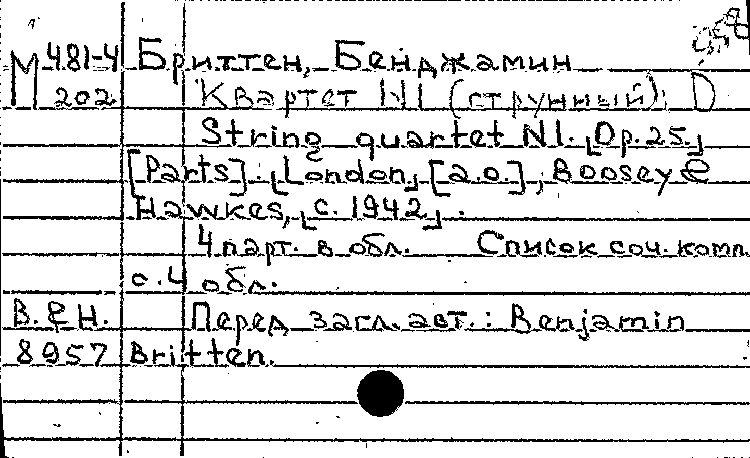 М 481-4 Бриттен, Бенджамин
202 Квартет N1 (струнный), D
String quartet N1. [Op. 25.]
[Parts]. [London], [a.o.], Boosey &
Hawkes, [c. 1942].
4 парт. в обл. Список соч. комп.
о. 4 обл.
В. & Н. Перед загл. авт.: Benjamin
8957 Britten.